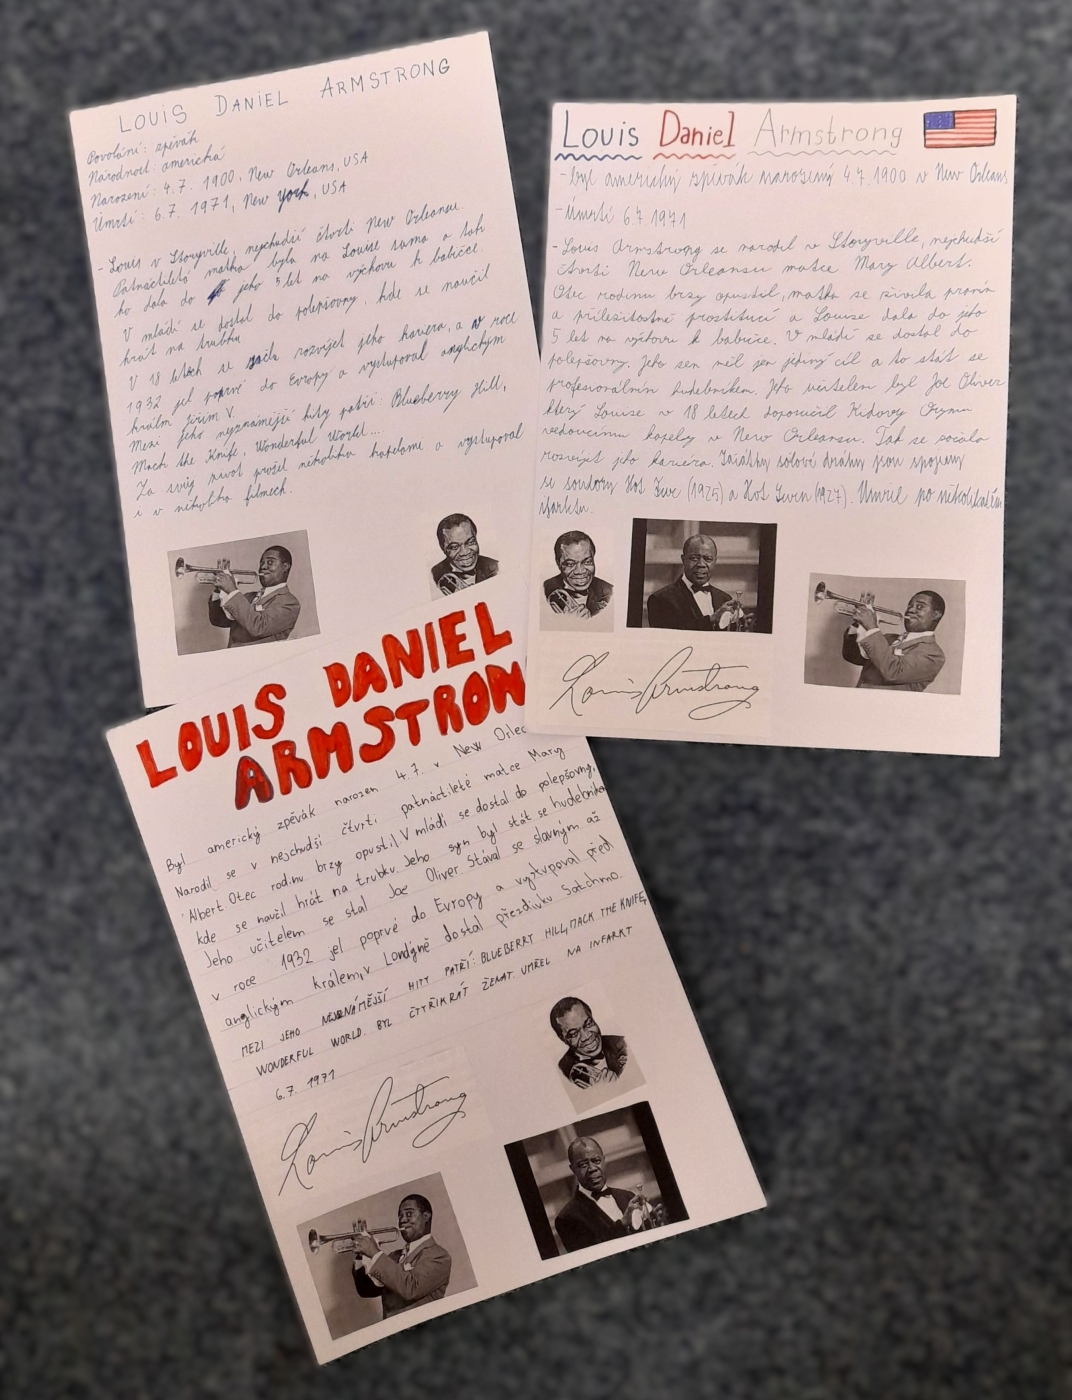 LOUIS DANIEL ARMSTRONG
Povolání: zpěvák
Národnost: americká
Narození: 4.7. 1900, New Orleans, USA
Úmrtí: 6.7. 1971, New York, USA
- Louis v Storyville, nejchudší čtvrti New Orleansu.
Patnáctiletá matka byla na Louise sama a tak
ho dala do jeho 5 let na výchovu k babičce.
V mládí se dostal do polepšovny, kde se naučil
hrát na trubku
V 18 letech se začla rozvíjet jeho kariéra, a v roce
1932 jel poprvé do Evropy a vystupoval anglickým
králem Jiřím V.
Mezi jeho nejznámější hity patří: Blueberry Hill,
Mack the Knife, Wonderful World...
Za svůj život prošel několika kapelami a vystupoval
i v několika filmech.
Louis Daniel Armstrong
- byl americký zpěvák narozený 4.7.1900 v New Orleans
- Úmrtí 6.7.1971
- Louis Armstrong se narodil v Storyville, nejchudší
čtvrti New Orleansu matce Mary Albert.
Otec rodinu brzy opustil, matka se živila praním
a příležitostně prostitucí a Louise dala do jeho
5 let na výchovu k babičce. V mládí se dostal do
polepšovny. Jeho sen měl jen jediný cíl a to stát se
profesionálním hudebníkem. Jeho učitelem byl Joe Oliver
který Louise v 18 letech doporučil Kidovy Orymu
vedoucímu kapely v New Orleansu. Tak se začala
rozvíjet jeho kariéra. Začátky sólové dráhy jsou spojeny
se soubory Hot Five (1925) a Hot Seven (1927). Umřel po několikátém
ifarktu.
Louis Armstrong
LOUIS DANIEL
ARMSTRON
Byl americký zpěvák narozen 4.7. v New Orlea
Narodil se v nejchudší čtvrti patnáctileté matce Mary
Albert. Otec rodinu brzy opustil. V mládí se dostal do polepšovny,
kde se naučil hrát na trubku. Jeho syn byl stát se hudebníke
Jeho učitelem se stal Joe Oliver. Stával se slavným až
v roce 1932 jel poprvé do Evropy a vystupoval před
anglickým králem, v Londýně dostal přezdívku Satchmo.
MEZI JEHO NEJZNÁMĚJŠÍ HITY PATŘÍ: BLUEBERRY HILL, MACK THE KNIFE,
WONDERFUL WORLD. BYL ČTYŘIKRÁT ŽENAT. UMŘEL NA INFARKT
6.7. 1971
Louis Armstrong